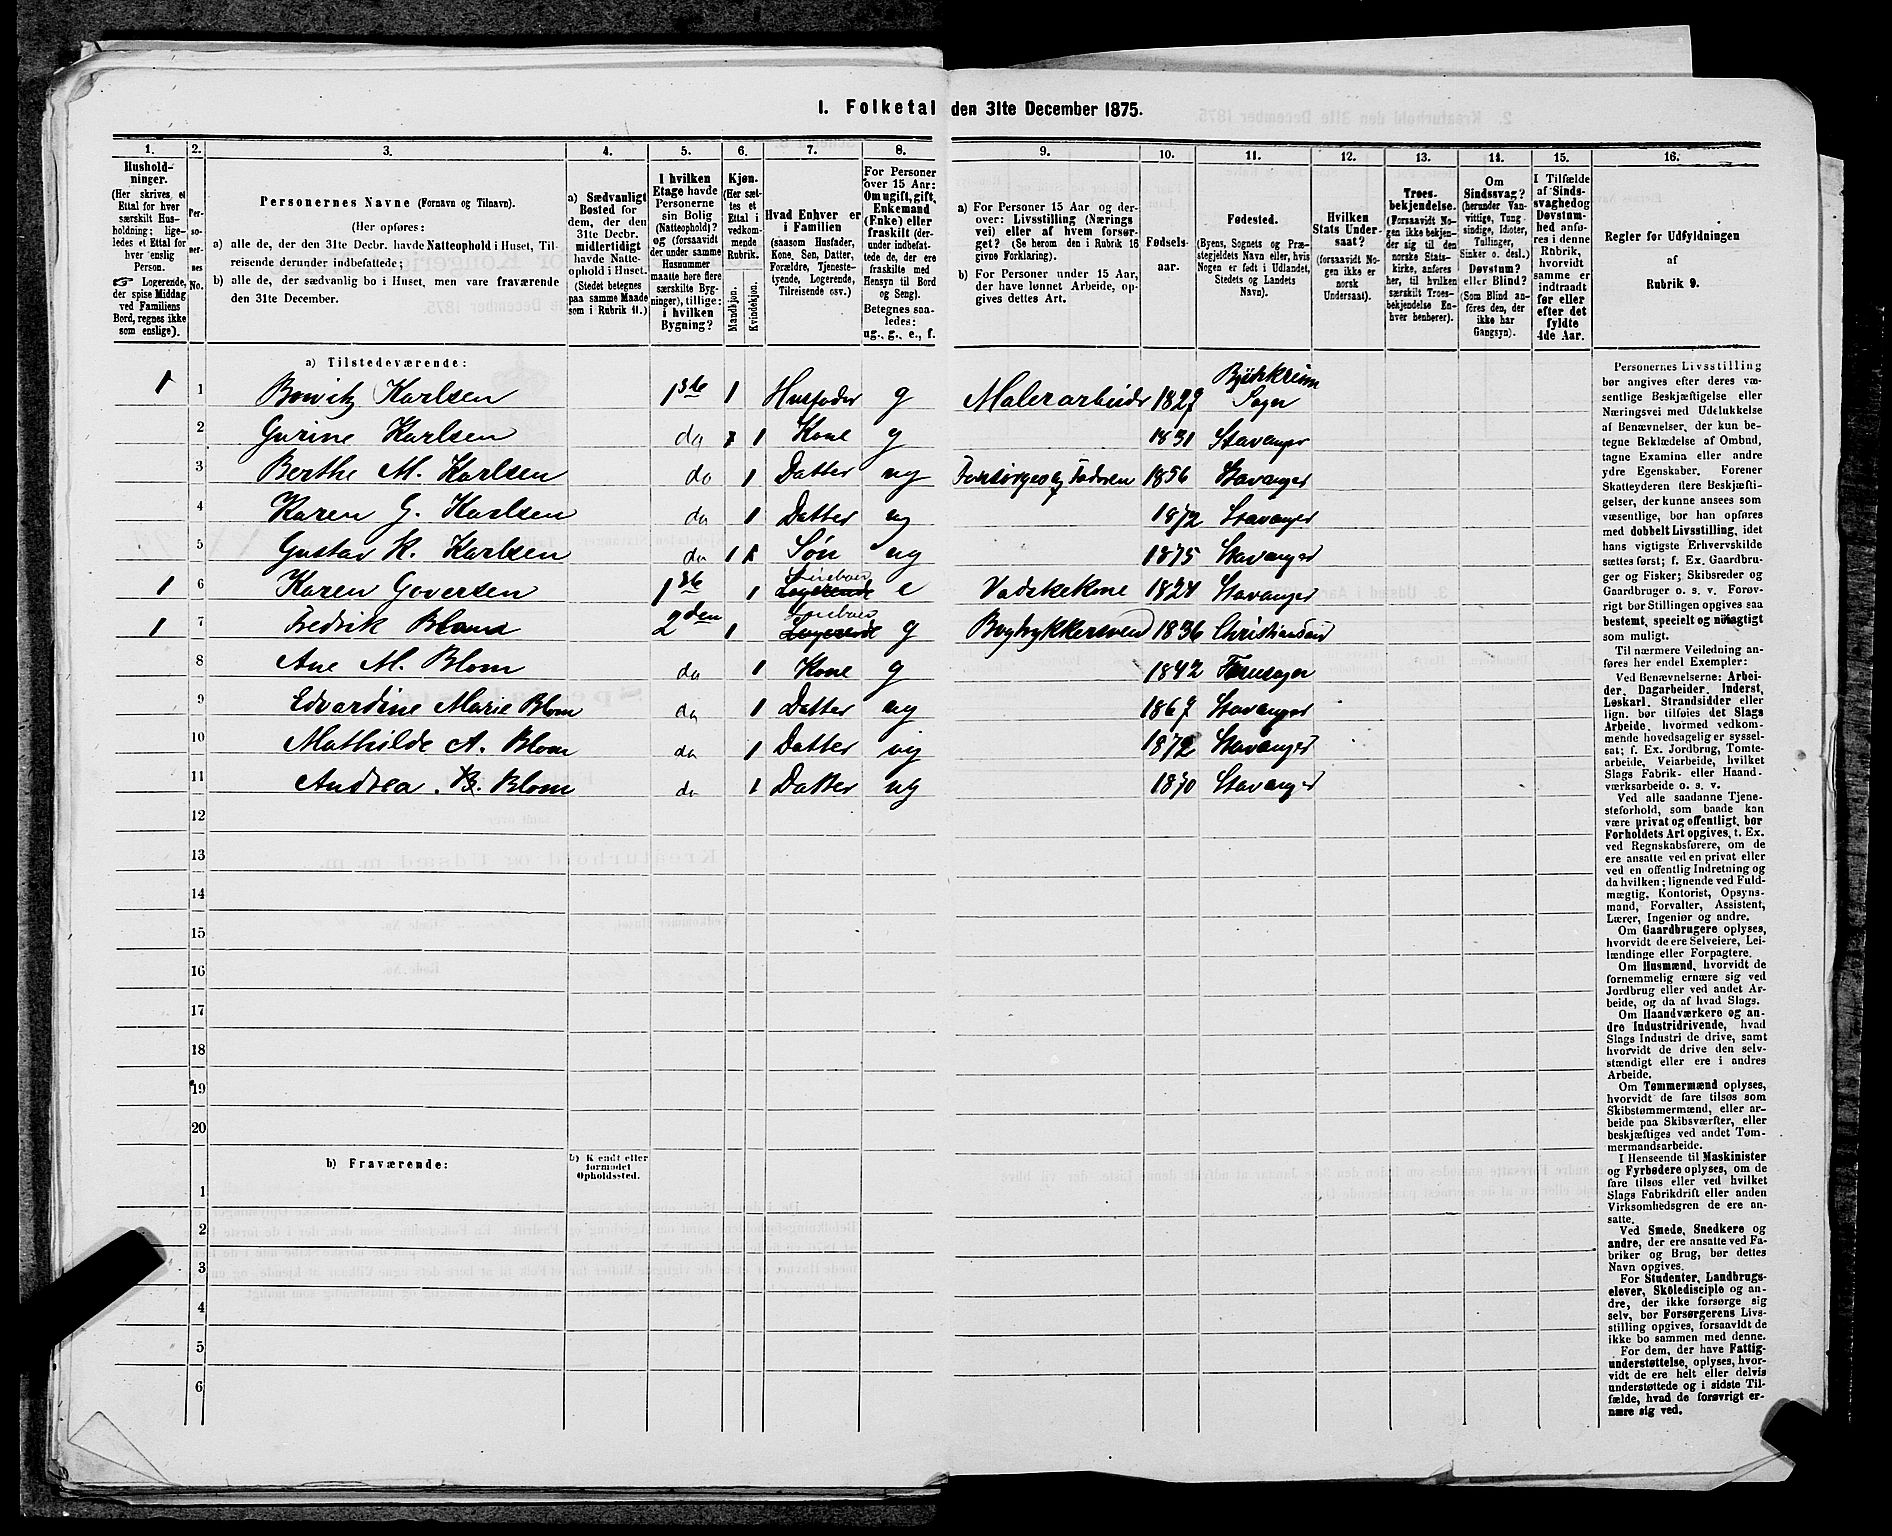 1. Folketal den 31te December 1875.
1. 2. 3. 4. 5. 6. 7. 8. 9. 10. 11. 12. 13. 14. 15. 16.
Hushold-
ninger.
(Her skrives et
Ettal for hver
særskilt Hus-
holdning; lige-
ledes et Ettal for
hver enslig
Person.
☞ Logerende,
der spise Middag
ved Familiens
Bord, regnes ikke
som enslige).
Per-
so-
ner-
nes
No.
Personernes Navne (Fornavn og Tilnavn).
(Her opføres:
a) alle de, der den 31te Decbr. havde Natteophold i Huset, Til-
reisende derunder indbefattede;
b) alle de, der sædvanlig bo i Huset, men vare fraværende
den 31te December.
a) Sædvanligt
Bosted for
dem, der den
31te Decbr.
midlertidigt
havde Natte-
ophold i Huset.
(Stedet betegnes
paa samme Maade
som i Rubrik 11.)
I hvilken
Etage havde
Personerne
sin Bolig
(Natteophold)?
og (forsaavidt
der under samme
Husnummer
maatte høre flere
særskilte Byg-
ninger), tillige:
i hvilken
Bygning?
Kjøn.
(Her sæt-
tes et
Ettal i
vedkom-
mende
Rubrik.
Mandkjøn.
Kvindekjøn.
Hvad Enhver er
i Familien
(saasom Husfader,
Kone, Søn, Datter,
Forældre, Tjeneste-
tyende, Logerende,
Tilreisende osv.)
For Personer
over 15 Aar:
Om ugift, gift,
Enkemand
(Enke) eller
fraskilt (der-
under indbefat-
tede de, der ere
fraskilte med
Hensyn til Bord
og Seng).
Betegnes saa-
ledes:
ug., g., e., f.
a) For Personer 15 Aar og der-
over: Livsstilling (Nærings
vei) eller af hvem forsør-
get? (Se herom den i Rubrik 16
givne Forklaring).
b) For Personer under 15 Aar,
der have lønnet Arbeide, op-
gives dettes Art.
Fødsels-
aar.
Fødested.
(Byens, Sognets og Præ-
stegjeldets Navn eller, hvis
Nogen er født i Udlandet,
Stedets og Landets
Navn).
Hvilken
Stats Under-
saat?
(forsaavidt No-
gen ikke er
norsk
Undersaat).
Troes-
bekjendelse.
(Forsaavidt No-
gen ikke bekjen-
der sig til den
norske Stats-
kirke, anføres
her, til hvilken
særskilt Troes-
bekjendelse En-
hver henhører).
Om
Sindssvag?
(herunder Van-
vittige, Tung
sindige, Idioter,
Tullinger,
Sinker o. desl.)
Døvstum?
eller Blind?
(Som Blind an-
føres den, der
ikke har
Gangsyn).
I Tilfælde
af Sinds-
svaghed og
Døvstum-
hed anfø-
res i denne
Rubrik,
hvorvidt
samme er
indtraadt
før eller
efter det
fyldte
4de Aar.
Regler for Udfyldningen
af
Rubrik 9.
a) Tilstedeværende:
1 1 Karlsen 1ste 1 Husfader g Malerarbeider 1827 Bjerkreim Sogn
2 Gurine Karlsen do 1 Kone g 1831 Stavanger
3 Berthe M. Karlsen do 1 Datter ug Forsørges af Faderen 1856 Stavanger
4 Karen G. Karlsen do 1 Datter ug 1872 Stavanger
5 Gustav K. Karlsen do 1 Søn ug 1875 Stavanger
1 6 Karen Goversen 1ste 1 Logerende e Vadskekone 1824 Stavanger
1 7 Fredrik Blom 2den 1 Logerende g Bogtrykkersvend 1836 Christiansand
8 Ane M. Blom do 1 Kone g 1842
9 Edvardine Marie Blom do 1 Datter ug 1867 Stavanger
10 Mathilde A. Blom do 1 Datter ug 1872 Stavanger
11 Andrea B. Blom do 1 Datter ug 1870 Stavanger
12
13
14
15
16
17
18
19
20
b) Fraværende:
b) Kjendt eller
formodet
Opholdssted.
1
2
3
4
5
6
Personernes Livsstilling
bør angives efter deres væ-
sentlige Beskjæftigelse eller
Næringsvei med Udelukkelse
af Benævnelser, der kun be-
tegne Beklædelse af Ombud,
tagne Examina eller andre
ydre Egenskaber. Forener
Skatteyderen flere Beskjæfti-
gelser, der kunne ansees som
væsentlige, bør han opføres
med dobbelt Livsstilling, idet
hans vigtigste Erhvervskilde
sættes først; f. Ex. Gaardbru-
ger og Fisker; Skibsreder og
Gaardbruger o. s. v. Forøv-
rigt bør Stillingen opgives saa
bestemt, specielt og nøiagtigt
som muligt.
Til nærmere Veiledning an-
føres her endel Exempler:
Ved Benævnelserne: Arbei-
der, Dagarbeider, Inderst,
Løskarl, Strandsidder eller
lign. bør tilføies det Slags
Arbeide, hvormed vedkom-
mende hovedsagelig er syssel-
sat; f. Ex. Jordbrug, Tomte-
arbeide, Veiarbeide, hvilket
Slags Fabrik- eller Haand-
værksarbeide o. s. v.
Ved alle saadanne Tjene-
steforhold, som baade kan
være privat og offentligt, bør
Forholdets Art opgives, t. Ex.
ved Regnskabsførere, om de
ere ansatte ved en privat eller
ved en offentlig Indretning og
da hvilken; lignende ved Fuld-
mægtig, Kontorist, Opsyns-
mand, Forvalter, Assistent,
Lærer, Ingeniør og andre.
Om Gaardbrugere oplyses,
hvorvidt de ere Selveiere, Lei-
lændinge eller Forpagtere.
Om Husmænd, hvorvidt de
fornemmelig ernære sig ved
Jordbrug eller ved andet Ar-
beide, og da af hvad Slags.
Om Haandværkere og an-
dre Industridrivende, hvad
Slags Industri de drive, samt
hvorvidt de drive den selv-
stændigt eller ere i andres
Arbeide.
Om Tømmermænd oplyses,
hvorvidt de fare tilsøs som
Skibstømmermænd, eller ar-
beide paa Skibsværfter, eller
beskjæftiges ved andet Tøm-
mermandsarbeide.
I Henseende til Maskinister
og Fyrbødere oplyses, om de
fare tilsøs eller ved hvilket
Slags Fabrikdrift eller anden
Virksomhedsgren de ere an-
satte.
Ved Smede, Snedkere og
andre, der ere ansatte ved Fa-
briker og Brug, bør dettes
Navn opgives.
For Studenter, Landbrugs-
elever, Skoledisciple og an-
dre, der ikke forsørge sig
selv, bør Forsørgerens Livs-
stilling opgives, forsaavidt de
ikke bo sammen med denne.
For dem, der have Fattig-
understøttelse, oplyses, hvor-
vidt de ere helt eller delvis
understøttede og i sidste Til-
fælde, hvad de forøvrigt er-
nære sig ved.